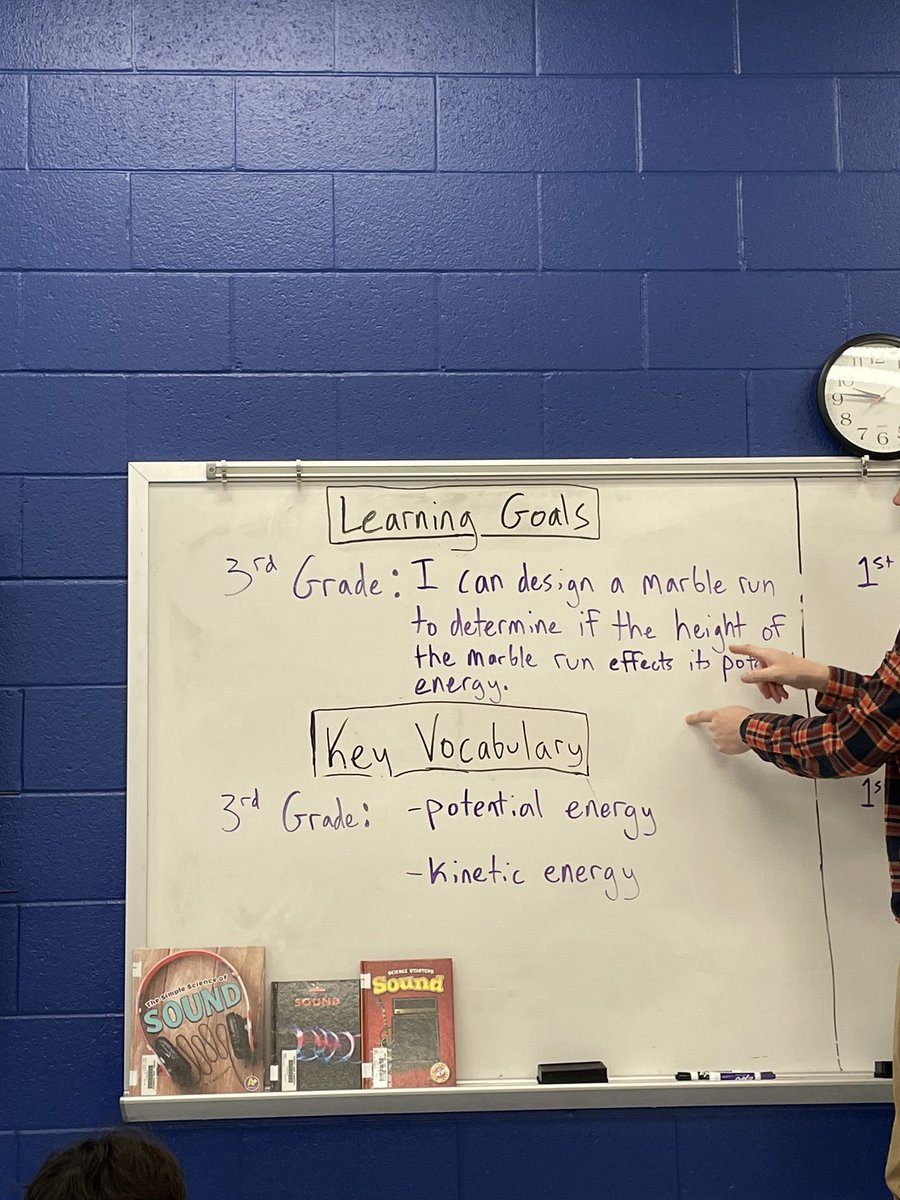 11 12
10
9
8
7 6
Learning Goals
3rd Grade: I can design a marble run
to determine if the height of
the marble run effects its
energy.
1st
Key Vocabulary
3rd Grade: -potential energy
-kinetic energy
The Simple Science of
SOUND
SOUND
SCIENCE STARTERS
Sound
A+